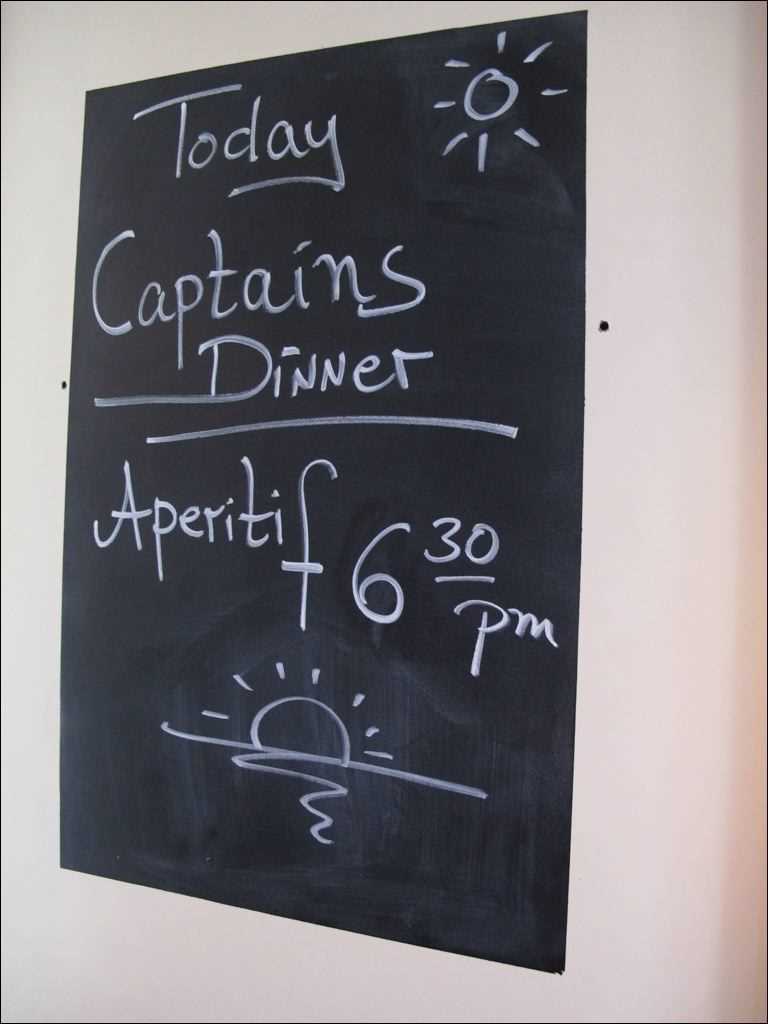 Today
Captains
Dinner
Aperitif 6 30
pm